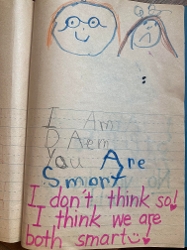 I Am
DAem
You Are
Smart
I don't think so!
I think we are
both smart!